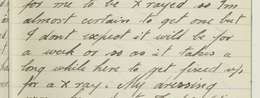 for me to be X rayed so I'm
almost certain to get one but
I dont expect it will be for
a week or so as it takes a
long while here to get fixed up
for a X ray. My dressing